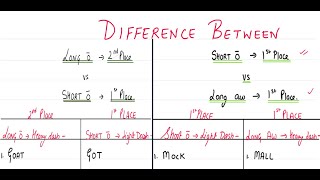 DIFFERENCE BETWEEN
LONG ō → 2nd PLACE
VS
SHORT ŏ → 1st PLACE
SHORT ŏ → 1st PLACE
VS
LONG aw → 1st PLACE
2nd PLACE 1st PLACE 1st PLACE 1st PLACE
LONG ō → HEAVY DASH - SHORT ŏ → LIGHT DASH - SHORT ŏ → LIGHT DASH - LONG AW → HEAVY DASH -
1. GOAT GOT 1. MOCK MALL